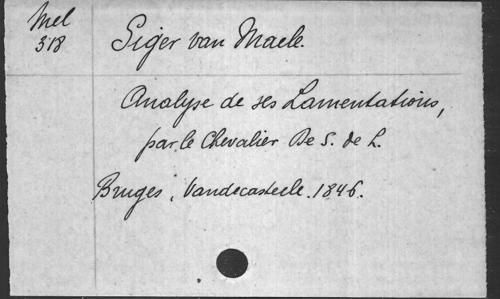 Mel
318
Siger van Maele.
Analyse de ses Lamentations,
par le Chevalier De S. de L.
Bruges, Vandecasteele. 1846.